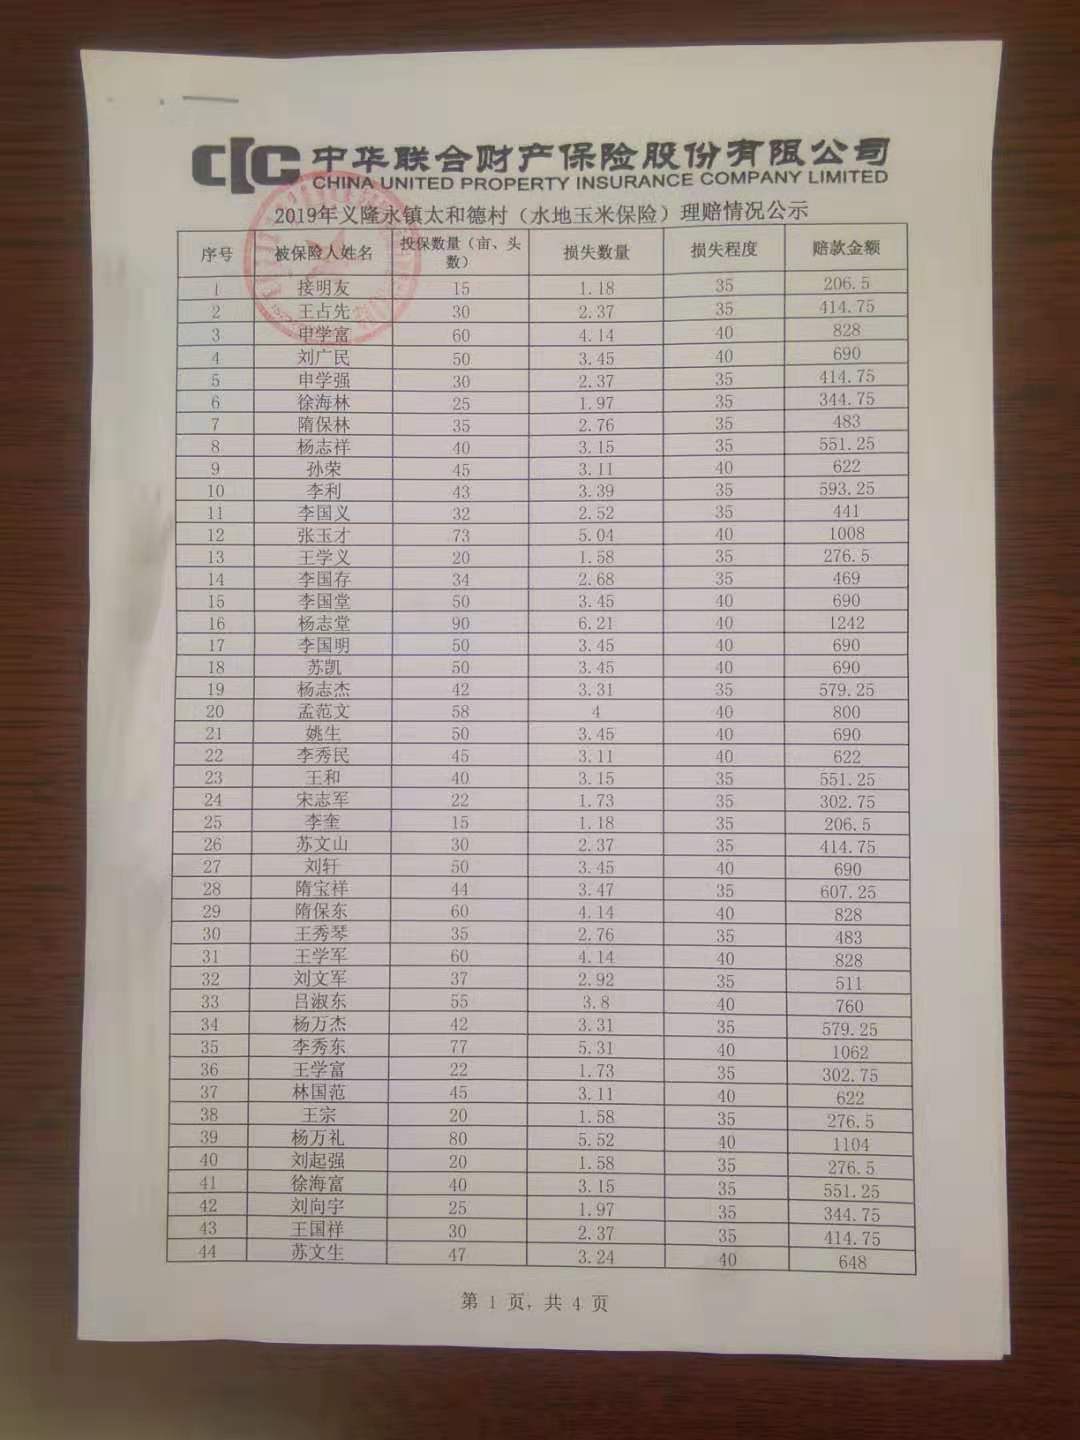 中华联合财产保险股份有限公司
CHINA UNITED PROPERTY INSURANCE COMPANY LIMITED
2019年义隆永镇太和德村（水地玉米保险）理赔情况公示
序号 被保险人姓名 投保数量（亩、头数） 损失数量 损失程度 赔款金额
1 接明友 15 1.18 35 206.5
2 王占先 30 2.37 35 414.75
3 申学富 60 4.14 40 828
4 刘广民 50 3.45 40 690
5 申学强 30 2.37 35 414.75
6 徐海林 25 1.97 35 344.75
7 隋保林 35 2.76 35 483
8 杨志祥 40 3.15 35 551.25
9 孙荣 45 3.11 40 622
10 李利 43 3.39 35 593.25
11 李国义 32 2.52 35 441
12 张玉才 73 5.04 40 1008
13 王学义 20 1.58 35 276.5
14 李国存 34 2.68 35 469
15 李国堂 50 3.45 40 690
16 杨志堂 90 6.21 40 1242
17 李国明 50 3.45 40 690
18 苏凯 50 3.45 40 690
19 杨志杰 42 3.31 35 579.25
20 孟范文 58 4 40 800
21 姚生 50 3.45 40 690
22 李秀民 45 3.11 40 622
23 王和 40 3.15 35 551.25
24 宋志军 22 1.73 35 302.75
25 李奎 15 1.18 35 206.5
26 苏文山 30 2.37 35 414.75
27 刘轩 50 3.45 40 690
28 隋宝祥 44 3.47 35 607.25
29 隋保东 60 4.14 40 828
30 王秀琴 35 2.76 35 483
31 王学军 60 4.14 40 828
32 刘文军 37 2.92 35 511
33 吕淑东 55 3.8 40 760
34 杨万杰 42 3.31 35 579.25
35 李秀东 77 5.31 40 1062
36 王学富 22 1.73 35 302.75
37 林国范 45 3.11 40 622
38 王宗 20 1.58 35 276.5
39 杨万礼 80 5.52 40 1104
40 刘起强 20 1.58 35 276.5
41 徐海富 40 3.15 35 551.25
42 刘向宇 25 1.97 35 344.75
43 王国祥 30 2.37 35 414.75
44 苏文生 47 3.24 40 648
第 1 页，共 4 页